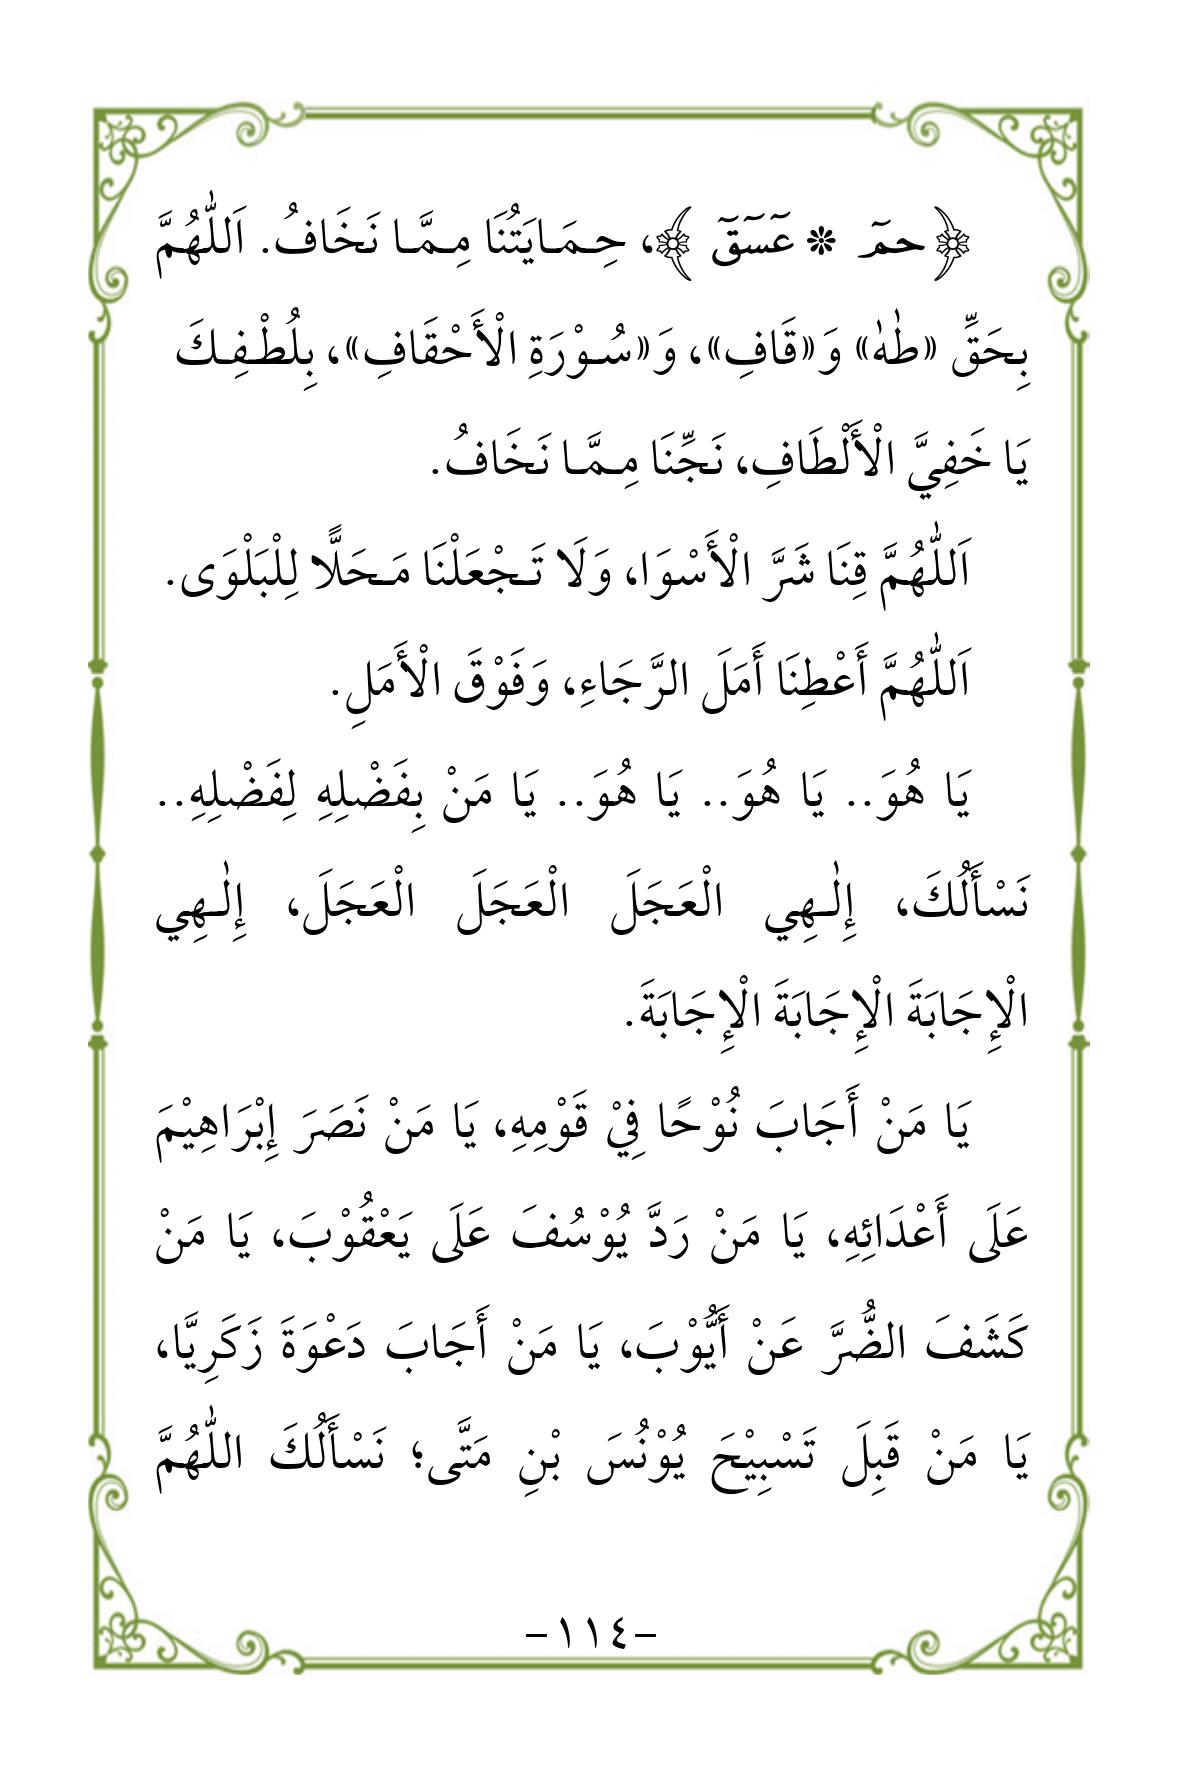 ﴿حمٓ ❋ عٓسٓقٓ﴾، حِـمَـايَتُنَا مِـمَّـا نَخَافُ. اَللّٰهُمَّ
بِحَقِّ «طٰهٰ» وَ«قَافِ»، وَ«سُـوْرَةِ الْأَحْقَافِ»، بِلُطْـفِـكَ
يَا خَفِيَّ الْأَلْطَافِ، نَجِّنَا مِـمَّـا نَخَافُ.
اَللّٰهُمَّ قِنَا شَرَّ الْأَسْوَا، وَلَا تَـجْعَلْنَا مَـحَلًّا لِلْبَلْوَى.
اَللّٰهُمَّ أَعْطِنَا أَمَلَ الرَّجَاءِ، وَفَوْقَ الْأَمَلِ.
يَا هُوَ.. يَا هُوَ.. يَا هُوَ.. يَا مَنْ بِفَضْلِهِ لِفَضْلِهِ..
نَسْأَلُكَ، إِلٰـهِي الْعَجَلَ الْعَجَلَ الْعَجَلَ، إِلٰـهِي
الْإِجَابَةَ الْإِجَابَةَ الْإِجَابَةَ.
يَا مَنْ أَجَابَ نُوْحًا فِيْ قَوْمِهِ، يَا مَنْ نَصَرَ إِبْرَاهِيْمَ
عَلَى أَعْدَائِهِ، يَا مَنْ رَدَّ يُوْسُفَ عَلَى يَعْقُوْبَ، يَا مَنْ
كَشَفَ الضُّرَّ عَنْ أَيُّوْبَ، يَا مَنْ أَجَابَ دَعْوَةَ زَكَرِيَّا،
يَا مَنْ قَبِلَ تَسْبِيْحَ يُوْنُسَ بْنِ مَتَّى؛ نَسْأَلُكَ اللّٰهُمَّ
-١١٤-